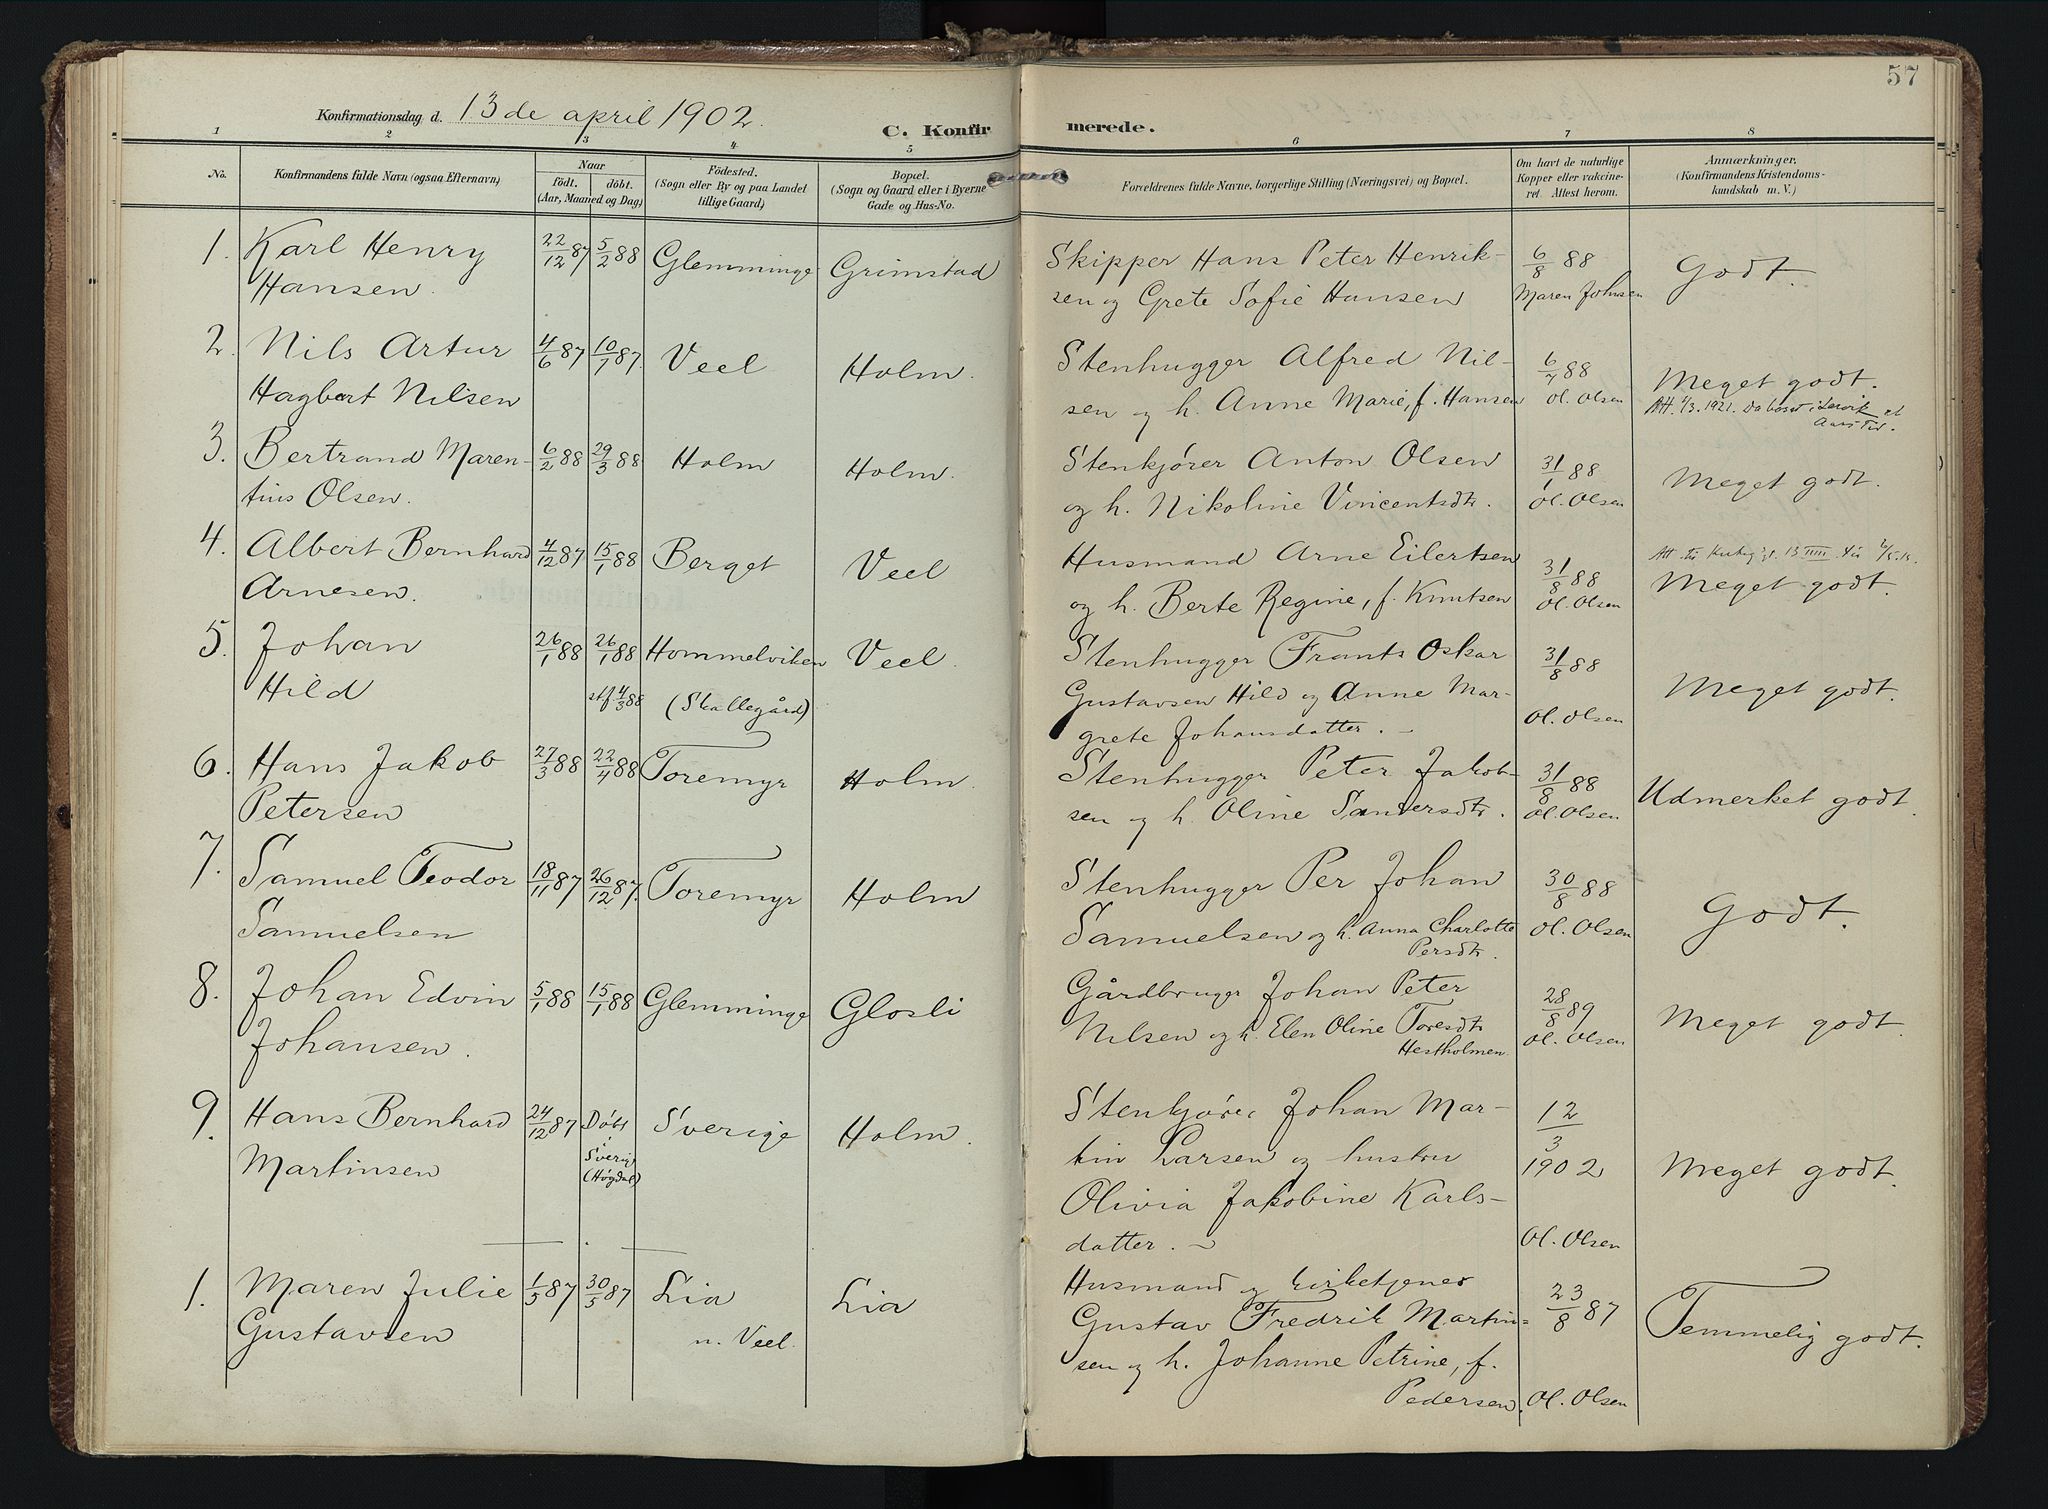 57
Konfirmationsdag d. 13de april 1902.
C. Konfirmerede.
1 2 3 4 5 6 7 8
No.
Konfirmandens fulde Navn (ogsaa Efternavn)
Naar
födt. döbt.
(Aar, Maaned og Dag)
Födested.
(Sogn eller By og paa Landet
tillige Gaard)
Bopæl.
(Sogn og Gaard eller i Byerne
Gade og Hus-No.
Forældrenes fulde Navne, borgerlige Stilling (Næringsvei) og Bopæl.
Om havt de naturlige
Kopper eller vakcine-
ret. Attest herom.
Anmærkninger.
(Konfirmandens Kristendoms-
kundskab m. V.)
1. Karl Henry 22/12 87 5/2 88 Glemminge Grimstad Skipper Hans Peter Henrik- 6/8 88 Godt.
Hansen. sen og Grete Sofie Hansen Maren Johnsen
2. Nils Artur 4/6 87 10/7 87. Veel Holm. Stenhugger Alfred Nil- 6/7 88 Meget godt.
Hagbart Nilsen sen og h. Anne Marie, f. Hansen Ol. Olsen Att. 1/3. 1921. Da boset i
3. Bertrand Maren- 6/2 88 29/3 88 Holm Holm. Stenkjører Anton Olsen 31/1 88 Meget godt.
tius Olsen. og h. Nikoline Vincentsdtr. Ol. Olsen
4. Albert Bernhard 4/12 87 15/1 88 Berget Veel Husmand Arne Eilertsen 31/8 88 Att. til
Arnesen. og h. Berte Regine, f. Knutsen Ol. Olsen Meget godt.
5. Johan 26/1 88 26/1 88 Hommelviken Veel. Stenhugger Frants Oskar 31/8 88
Hild stf 4/3 88 (Skallegård) Gustavsen Hild og Anne Mar- Ol. Olsen Meget godt.
grete Johansdatter. –
6. Hans Jakob 27/3 88 22/4 88 Toremyr Holm. Stenhugger Peter Jakob- 31/8 88 Udmerket godt.
Petersen sen og h. Oline Sandersdtr. Ol. Olsen
7. Samuel Teodor 18/11 87 26/12 87. Toremyr Holm Stenhugger Per Johan 30/8 88 Godt.
Samuelsen Samuelsen og h. Anna Charlotte Ol. Olsen
Persdtr.
8. Johan Edvin 5/1 88 15/1 88 Glemminge Glosli Gårdbruger Johan Peter 28/8 89 Meget godt.
Johansen. Nilsen og h. Elen Oline Toresdtr Ol. Olsen
Hestholmen.
9. Hans Bernhard 24/12 87 Döbt Sverige Holm. Stenkjører Johan Mar- 12/3
Martinsen i Sverig (Högdal) tin Larsen og hustru 1902 Meget godt.
Olivia Jakobine Karls-
datter. – Ol. Olsen
1. Maren Julie 1/5 87 30/5 87 Lia Lia Husmand og kirketjener 23/8 87 Temmelig godt.
Gustavsen u. Veel. Gustav Fredrik Martin-
sen og h. Johanne Petrine, f.
Pedersen. Ol. Olsen